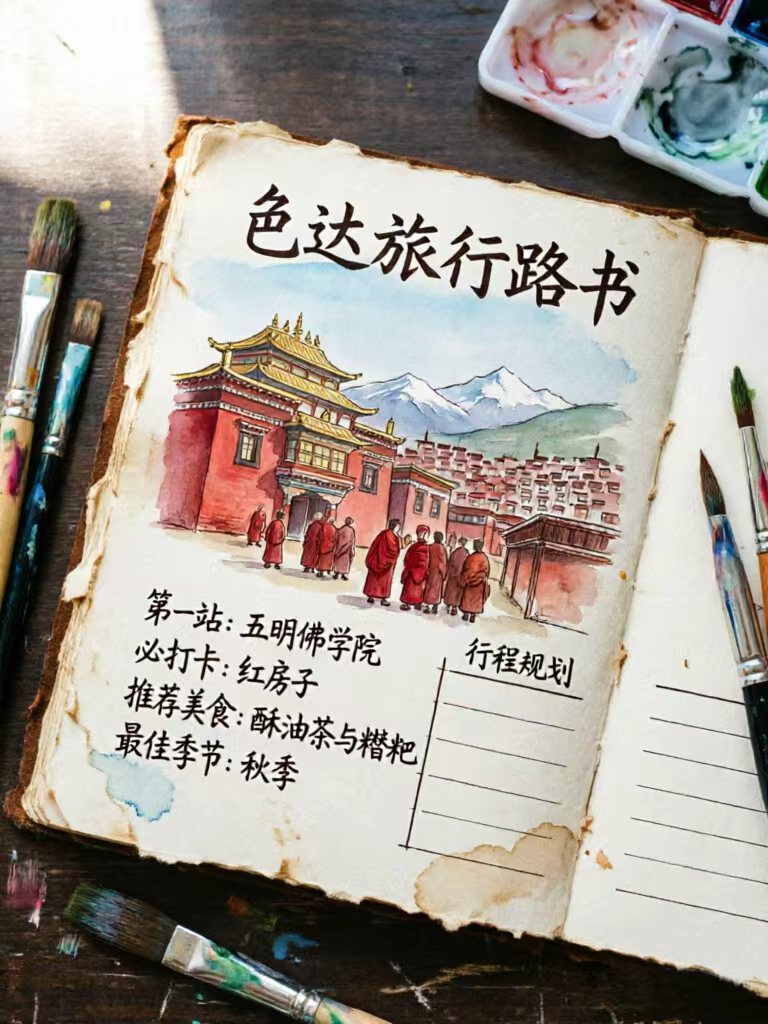 色达旅行路书
第一站：五明佛学院
必打卡：红房子
推荐美食：酥油茶与糌粑
最佳季节：秋季
行程规划